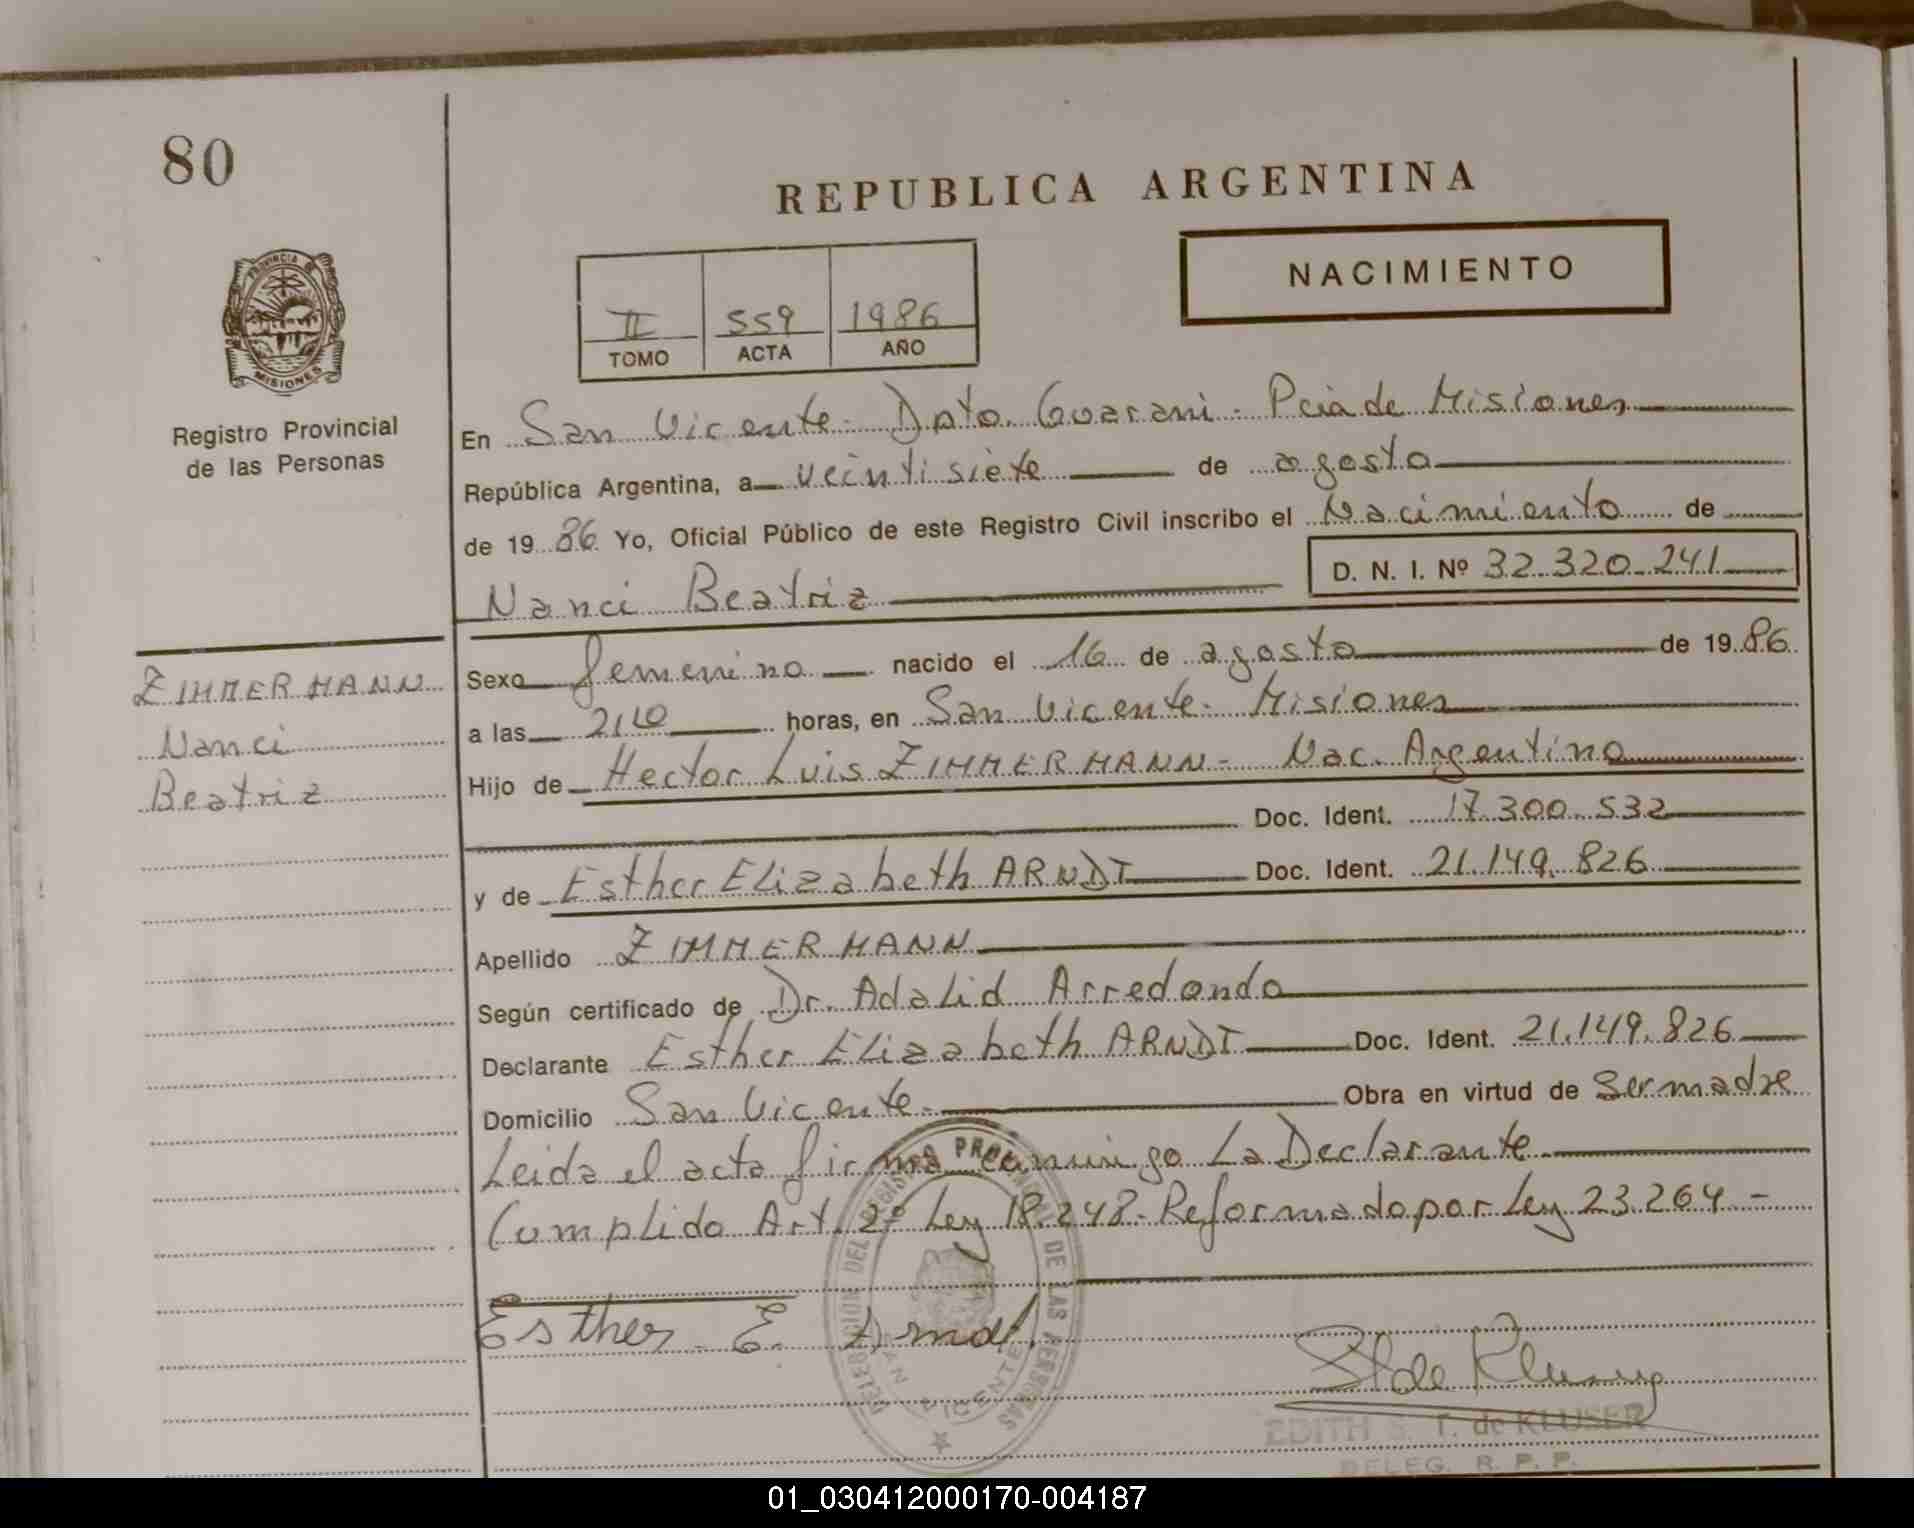 80
REPUBLICA ARGENTINA
NACIMIENTO
II 559 1986
TOMO ACTA AÑO
PROVINCIA DE
MISIONES
Registro Provincial
de las Personas
En San Vicente - Dpto. Guarani - Pcia de Misiones
República Argentina, a veintisiete de agosto
de 1986 Yo, Oficial Público de este Registro Civil inscribo el Nacimiento de
Nanci Beatriz D. N. I. Nº 32.320.241
ZIMMERMANN
Nanci
Beatriz
Sexo femenino nacido el 16 de agosto de 1986
a las horas, en San Vicente - Misiones
Hijo de Hector Luis ZIMMERMANN - Nac. Argentino
Doc. Ident. 17.300.532
y de Esther Elizabeth ARNDT Doc. Ident. 21.149.826
Apellido ZIMMERMANN
Según certificado de Dr. Adalid Arredondo
Declarante Esther Elizabeth ARNDT Doc. Ident. 21.149.826
Domicilio San Vicente - Obra en virtud de ser madre
Leida el acta firma conmigo La Declarante
Cumplido Art. 2º Ley 18.248 - Reformado por Ley 23.264 -
Esther E. Arndt
DELEGACION DEL REGISTRO PROVINCIAL DE LAS PERSONAS
SAN VICENTE
EDITH S. T. de KLUSER
DELEG. R. P. P.
01_030412000170-004187